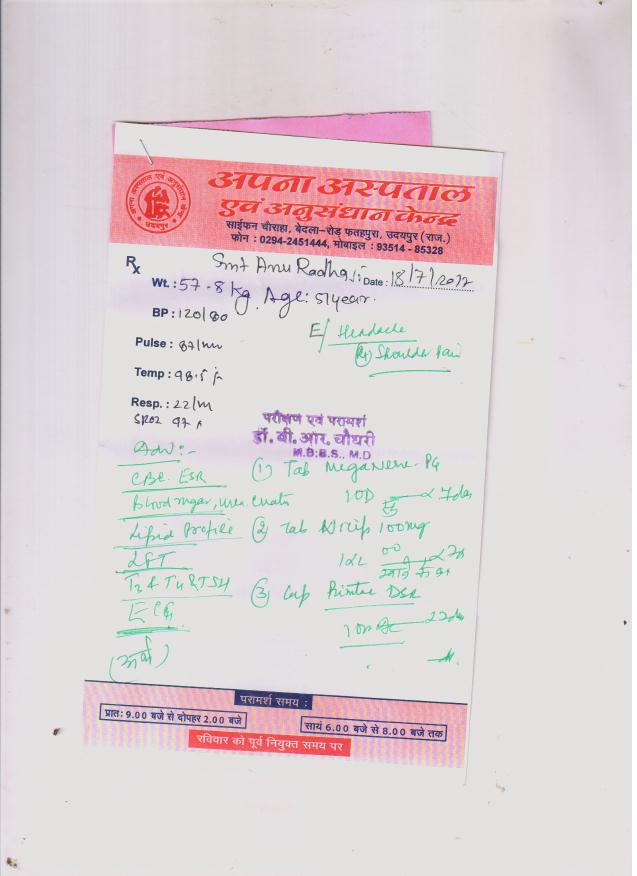 अपना अस्पताल
एवं अनुसंधान केन्द्र
साईफन चौराहा, बेदला-रोड़ फतहपुरा, उदयपुर (राज.)
फोन : 0294-2451444, मोबाइल : 93514 - 85328
Rx
Smt Anu Radha Ji Date : 18/7/2022
Wt. : 57-8 kg. Age: 51 year.
BP : 120/80
E/ Headache
Pulse : 87/
(Rt) Shoulder Pain
Temp : 98.5 F
Resp. : 22/m
SPO2 97
परीक्षण एवं परामर्श
डॉ. बी. आर. चौधरी
M.B.B.S., M.D
Adv :-
(1) Tab Meganerve-PG
CBC. ESR
1 OD 7 days
Blood sugar, urea
Lipid Profile
(2) Tab 100mg
LFT
खाने के
T3 & T4 & TSH
(3) Cap DSR
ECG
1 OD
परामर्श समय :
प्रातः 9.00 बजे से दोपहर 2.00 बजे
सायं 6.00 बजे से 8.00 बजे तक
रविवार को पूर्व नियुक्त समय पर